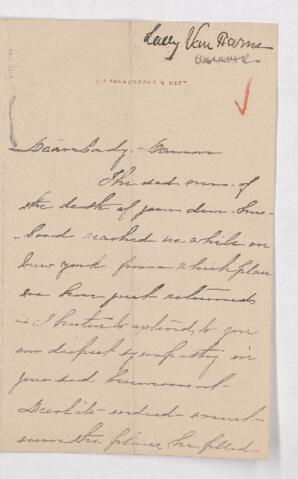 Lady Van Horne
Dear Lady - Vanhorn
The sad news of
the death of your dear hus-
band reached us while in
New York from which place
we have just returned
& I hasten to extend to you
our deepest sympathy in
your sad bereavement -
the place he filled